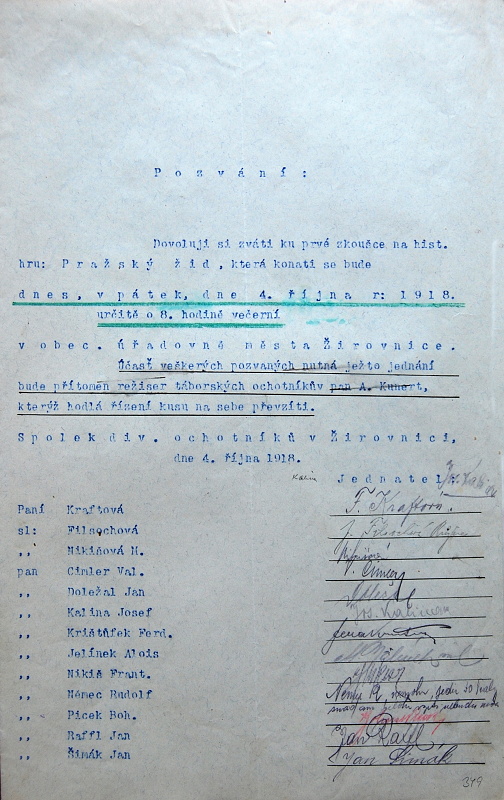 Pozvání:
Dovoluji si zváti ku prvé zkoušce na hist.
hru: Pražský žid, která konati se bude
dnes, v pátek, dne 4. října r: 1918.
určitě o 8. hodině večerní
v obec. úřadovně města Žirovnice.
Účasť veškerých pozvaných nutná ježto jednání
bude přítomen režiser táborských ochotníkův pan A. Kunert,
kterýž hodlá řízení kusu na sebe převzíti.
Spolek div. ochotníků v Žirovnici,
dne 4. října 1918.
Kalina
Jednatel:
Paní Kraftová F. Kraftová
sl: Filsochová
,, Nikišová M.
pan Cimler Val. V. Cimler
,, Doležal Jan
,, Kalina Josef Jos. Kalina
,, Krištůfek Ferd.
,, Jelínek Alois
,, Nikiš Frant.
,, Němec Rudolf Němec R.
,, Picek Boh.
,, Raffl Jan Jan Raffl
,, Šimák Jan Jan Šimák
319